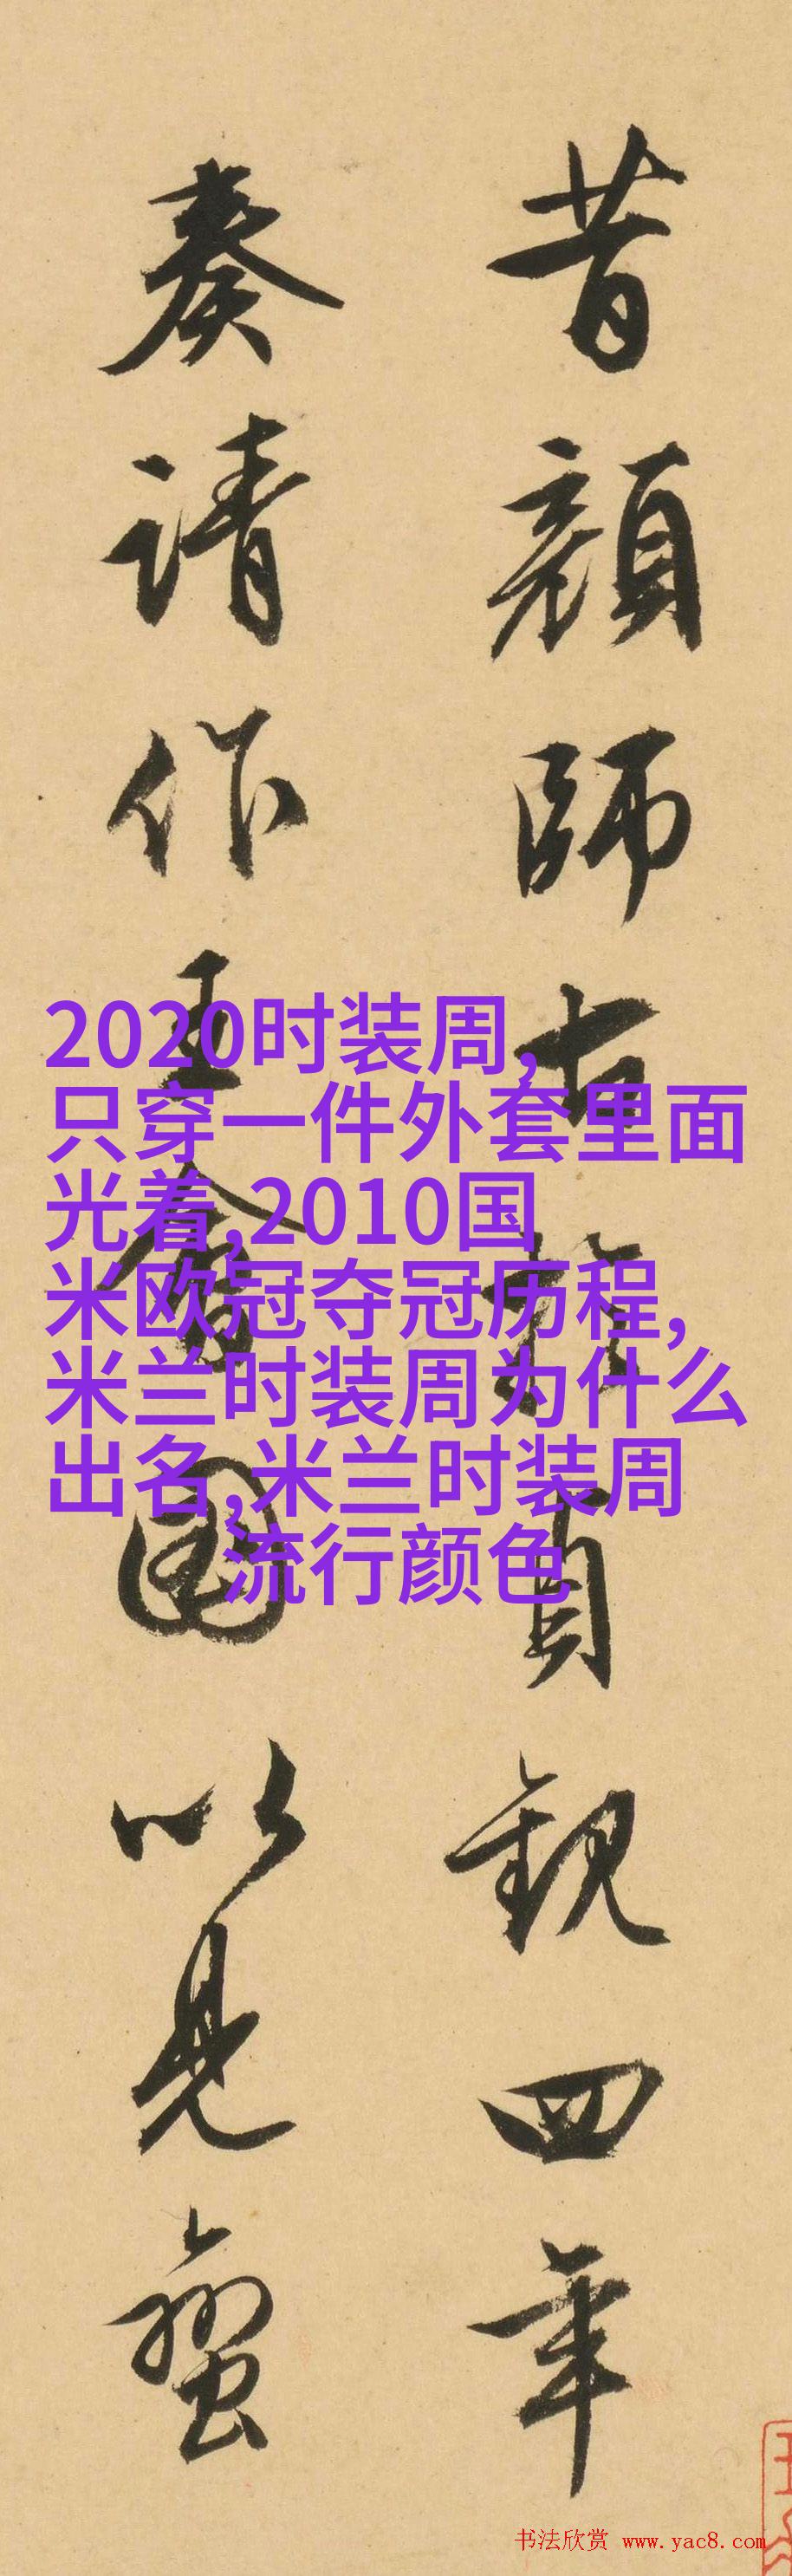 昔顏師古於貞觀四年
奏請作王會圖以見蠻
2020时装周,
只穿一件外套里面
光着,2010国
米欧冠夺冠历程,
米兰时装周为什么
出名,米兰时装周
流行颜色
书法欣赏 www.yac8.com